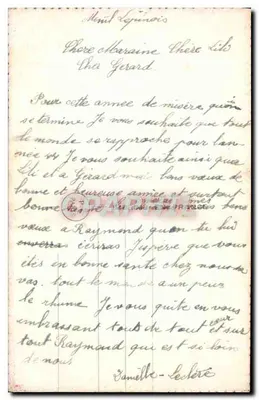 Menil Lépinois
Chere Maraine Chère Lili
Cher Gerard
Pour cette année de misère qu'on
se termine Je vous souhaite que tout
le monde se rapproche pour l'an-
née Je vous souhaite ainsi qua
Lili et a Gérard mes bons vœux de
bonne et heureuse année et surtout
bonne bons
vœux a Raymond quan tu lui
envera écriras J'espère que vous
êtes en bonne sante chez nous
vas tout le m a un peux
le rhume Je vous quite en vous
embrassant tous de tout cœur et sur
tout Raymond qui est si loin
de nous
Danielle - Leclère